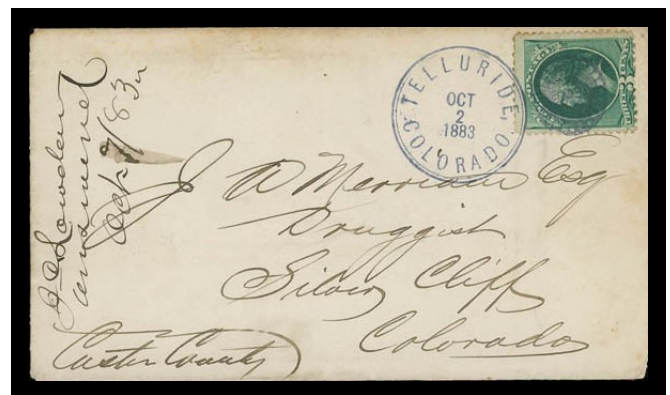 TELLURIDE,
COLORADO.
OCT
2
1883
J A Merriam Esq
Druggist
Silver Cliff
Colorado
Custer County
J C Lowden
answered
Oct 7/83